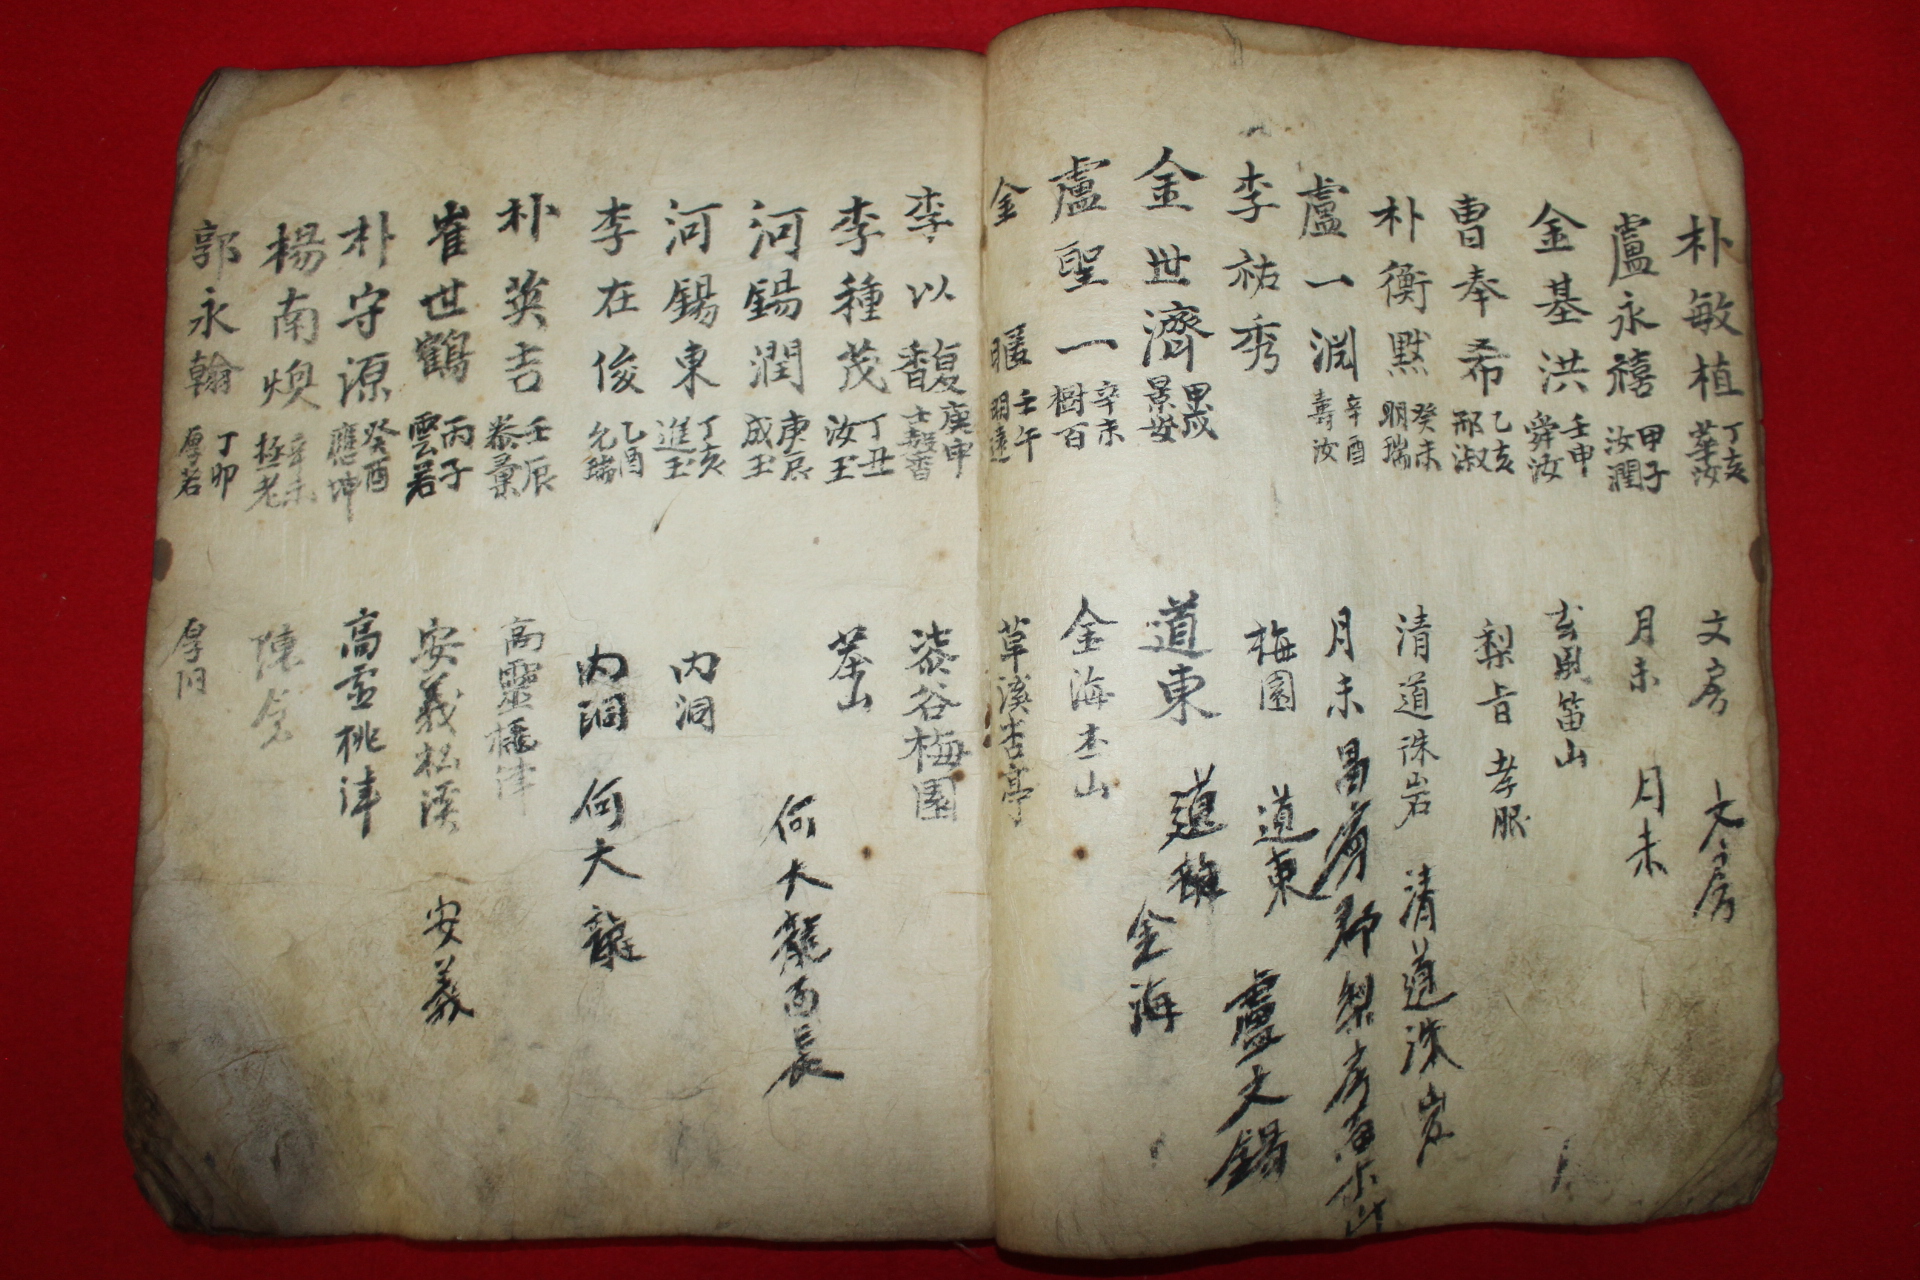 朴敏植 丁亥 華汝 文房 文房
盧永禧 甲子 汝潤 月未 月未
金基洪 壬申 舜汝 玄風笛山
曺奉希 乙亥 邢淑 梨旨 孝服
朴衡默 癸未 明瑞 清道珠岩 清道珠岩
盧一淵 辛酉 壽汝 月未
李祐秀 梅園 道東 盧大錫
金世濟 甲戌 景安 道東 道
盧聖一 辛未 樹百 金海 山 金海
金 暱 壬午 明遠 草溪杏亭
李以馥 庚申 士馨 漆谷梅園
李種茂 丁丑 汝玉 茶山
河錫潤 庚辰 成玉 何大龍面長
河錫東 丁亥 進玉 內洞
李在俊 乙酉 允瑞 內洞 何大龍
朴英吉 壬辰 泰彙 高靈橋津
崔世鶴 丙子 雲若 安義松溪 安義
朴守源 癸酉 應坤 高靈桃津
楊南煥 辛未 極老 陳
郭永翰 丁卯 厚若 厚